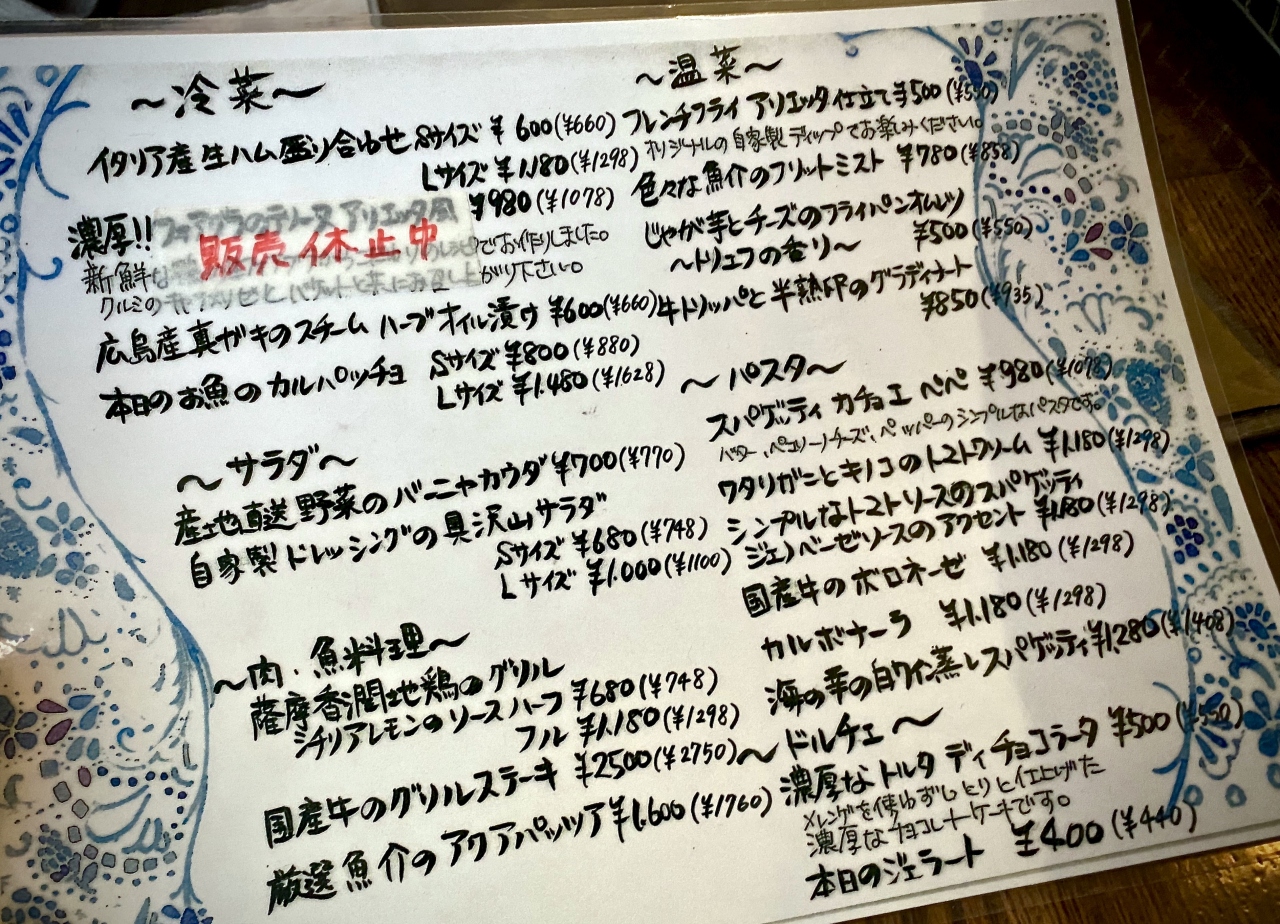 ～冷菜～
イタリア産生ハム盛り合わせ Sサイズ ¥600(¥660)
Lサイズ ¥1,180(¥1298)
濃厚!! フォアグラのテリーヌ アリエッタ風 ¥980(¥1078)
販売休止中
新鮮な でお作りしました。
クルミの がり下さい。
広島産真ガキのスチーム ハーブオイル漬け ¥600(¥660)
本日のお魚のカルパッチョ Sサイズ ¥800(¥880)
Lサイズ ¥1.480(¥1628)
～サラダ～
産地直送野菜のバーニャカウダ ¥700(¥770)
自家製ドレッシングの具沢山サラダ
Sサイズ ¥680(¥748)
Lサイズ ¥1.000(¥1100)
～肉、魚料理～
薩摩香潤地鶏のグリル
シチリアレモンのソース ハーフ ¥680(¥748)
フル ¥1.180(¥1298)
国産牛のグリルステーキ ¥2500(¥2750)
厳選魚介のアクアパッツア ¥1.600(¥1760)
～温菜～
フレンチフライ アリエッタ仕立て ¥500(¥550)
オリジナルの自家製ディップでお楽しみください。
色々な魚介のフリットミスト ¥780(¥858)
じゃが芋とチーズのフライパンオムレツ
～トリュフの香り～ ¥500(¥550)
牛トリッパと半熟卵のグラディナート
¥850(¥935)
～パスタ～
スパゲッティ カチョエペペ ¥980(¥1078)
バター、ペコリーノチーズ、ペッパーのシンプルなパスタです。
ワタリガニとキノコのトマトクリーム ¥1.180(¥1298)
シンプルなトマトソースのスパゲッティ
ジェノベーゼソースのアクセント ¥1.180(¥1298)
国産牛のボロネーゼ ¥1.180(¥1298)
カルボナーラ ¥1.180(¥1298)
海の幸の白ワイン蒸しスパゲッティ ¥1,280(¥1408)
～ドルチェ～
濃厚なトルタ ディ チョコラータ ¥500(¥550)
メレンゲを使わずしっとりと仕上げた
濃厚なチョコレートケーキです。
本日のジェラート ¥400(¥440)